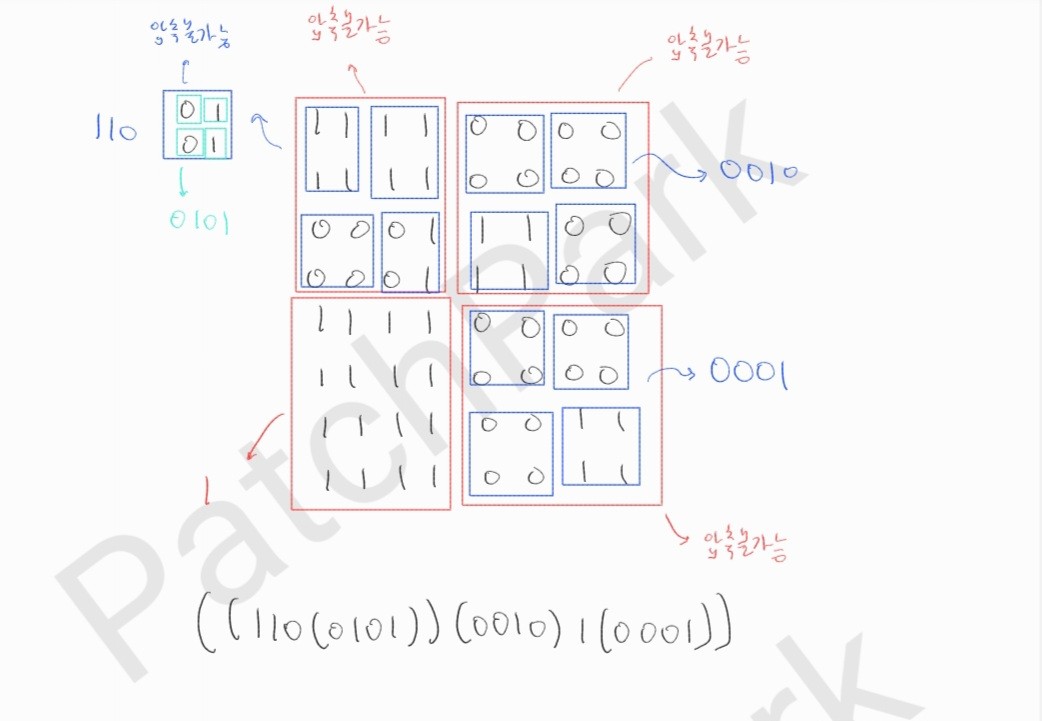 압축불가능
압축불가능
압축불가능
110
0 1
0 1
0101
1 1 1 1
1 1 1 1
0 0 0 1
0 0 0 1
0 0 0 0
0 0 0 0
1 1 0 0
1 1 0 0
0010
1 1 1 1
1 1 1 1
1 1 1 1
1 1 1 1
1
0 0 0 0
0 0 0 0
0 0 1 1
0 0 1 1
0001
압축불가능
((110(0101))(0010)1(0001))
PatchPark